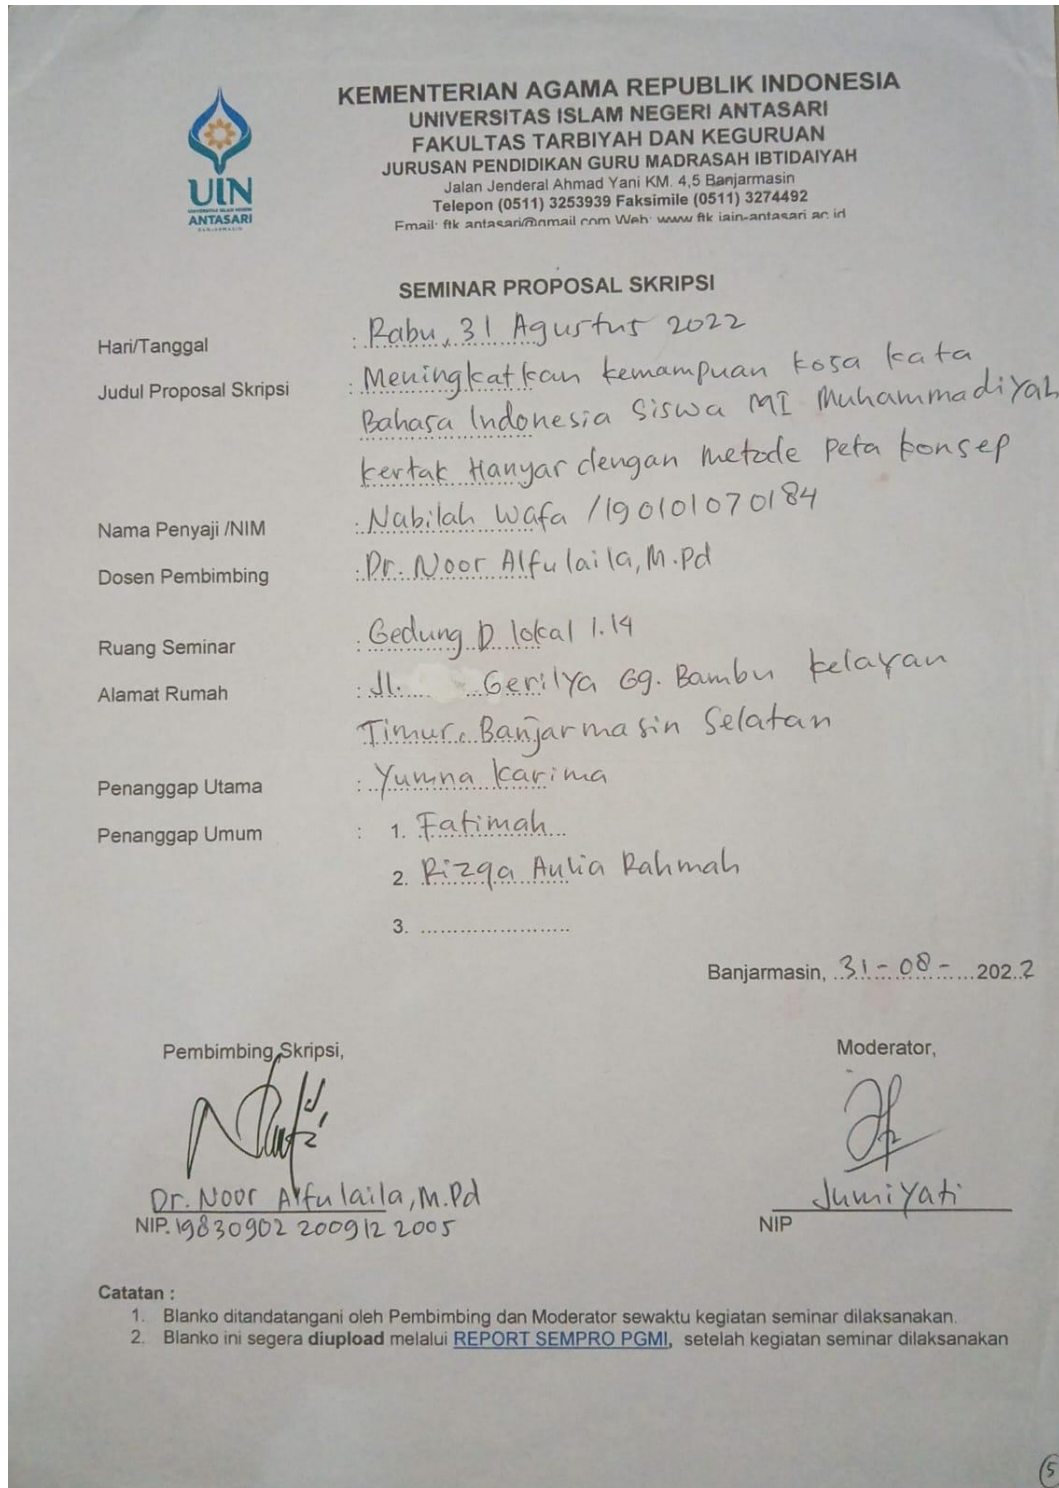 KEMENTERIAN AGAMA REPUBLIK INDONESIA
UNIVERSITAS ISLAM NEGERI ANTASARI
FAKULTAS TARBIYAH DAN KEGURUAN
JURUSAN PENDIDIKAN GURU MADRASAH IBTIDAIYAH
Jalan Jenderal Ahmad Yani KM. 4,5 Banjarmasin
Telepon (0511) 3253939 Faksimile (0511) 3274492
Email: ftk.antasari@gmail.com Web: www.ftk.iain-antasari.ac.id
UIN
UNIVERSITAS ISLAM NEGERI
ANTASARI
BANJARMASIN
SEMINAR PROPOSAL SKRIPSI
Hari/Tanggal : Rabu, 31 Agustus 2022
Judul Proposal Skripsi : Meningkatkan kemampuan kosa kata
Bahasa Indonesia Siswa MI Muhammadiyah
kertak Hanyar dengan metode peta konsep
Nama Penyaji /NIM : Nabilah Wafa /190101070184
Dosen Pembimbing : Dr. Noor Alfulaila, M.Pd
Ruang Seminar : Gedung D lokal 1.14
Alamat Rumah : Jl. Gerilya Gg. Bambu kelayan
Timur, Banjarmasin Selatan
Penanggap Utama : Yumna karima
Penanggap Umum : 1. Fatimah
2. Rizqa Aulia Rahmah
3. ........................
Banjarmasin, 31-08-2022
Pembimbing Skripsi, Moderator,
Dr. Noor Alfulaila, M.Pd Jumiyati
NIP. 19830902 200912 2005 NIP
Catatan :
1. Blanko ditandatangani oleh Pembimbing dan Moderator sewaktu kegiatan seminar dilaksanakan.
2. Blanko ini segera diupload melalui REPORT SEMPRO PGMI, setelah kegiatan seminar dilaksanakan
5